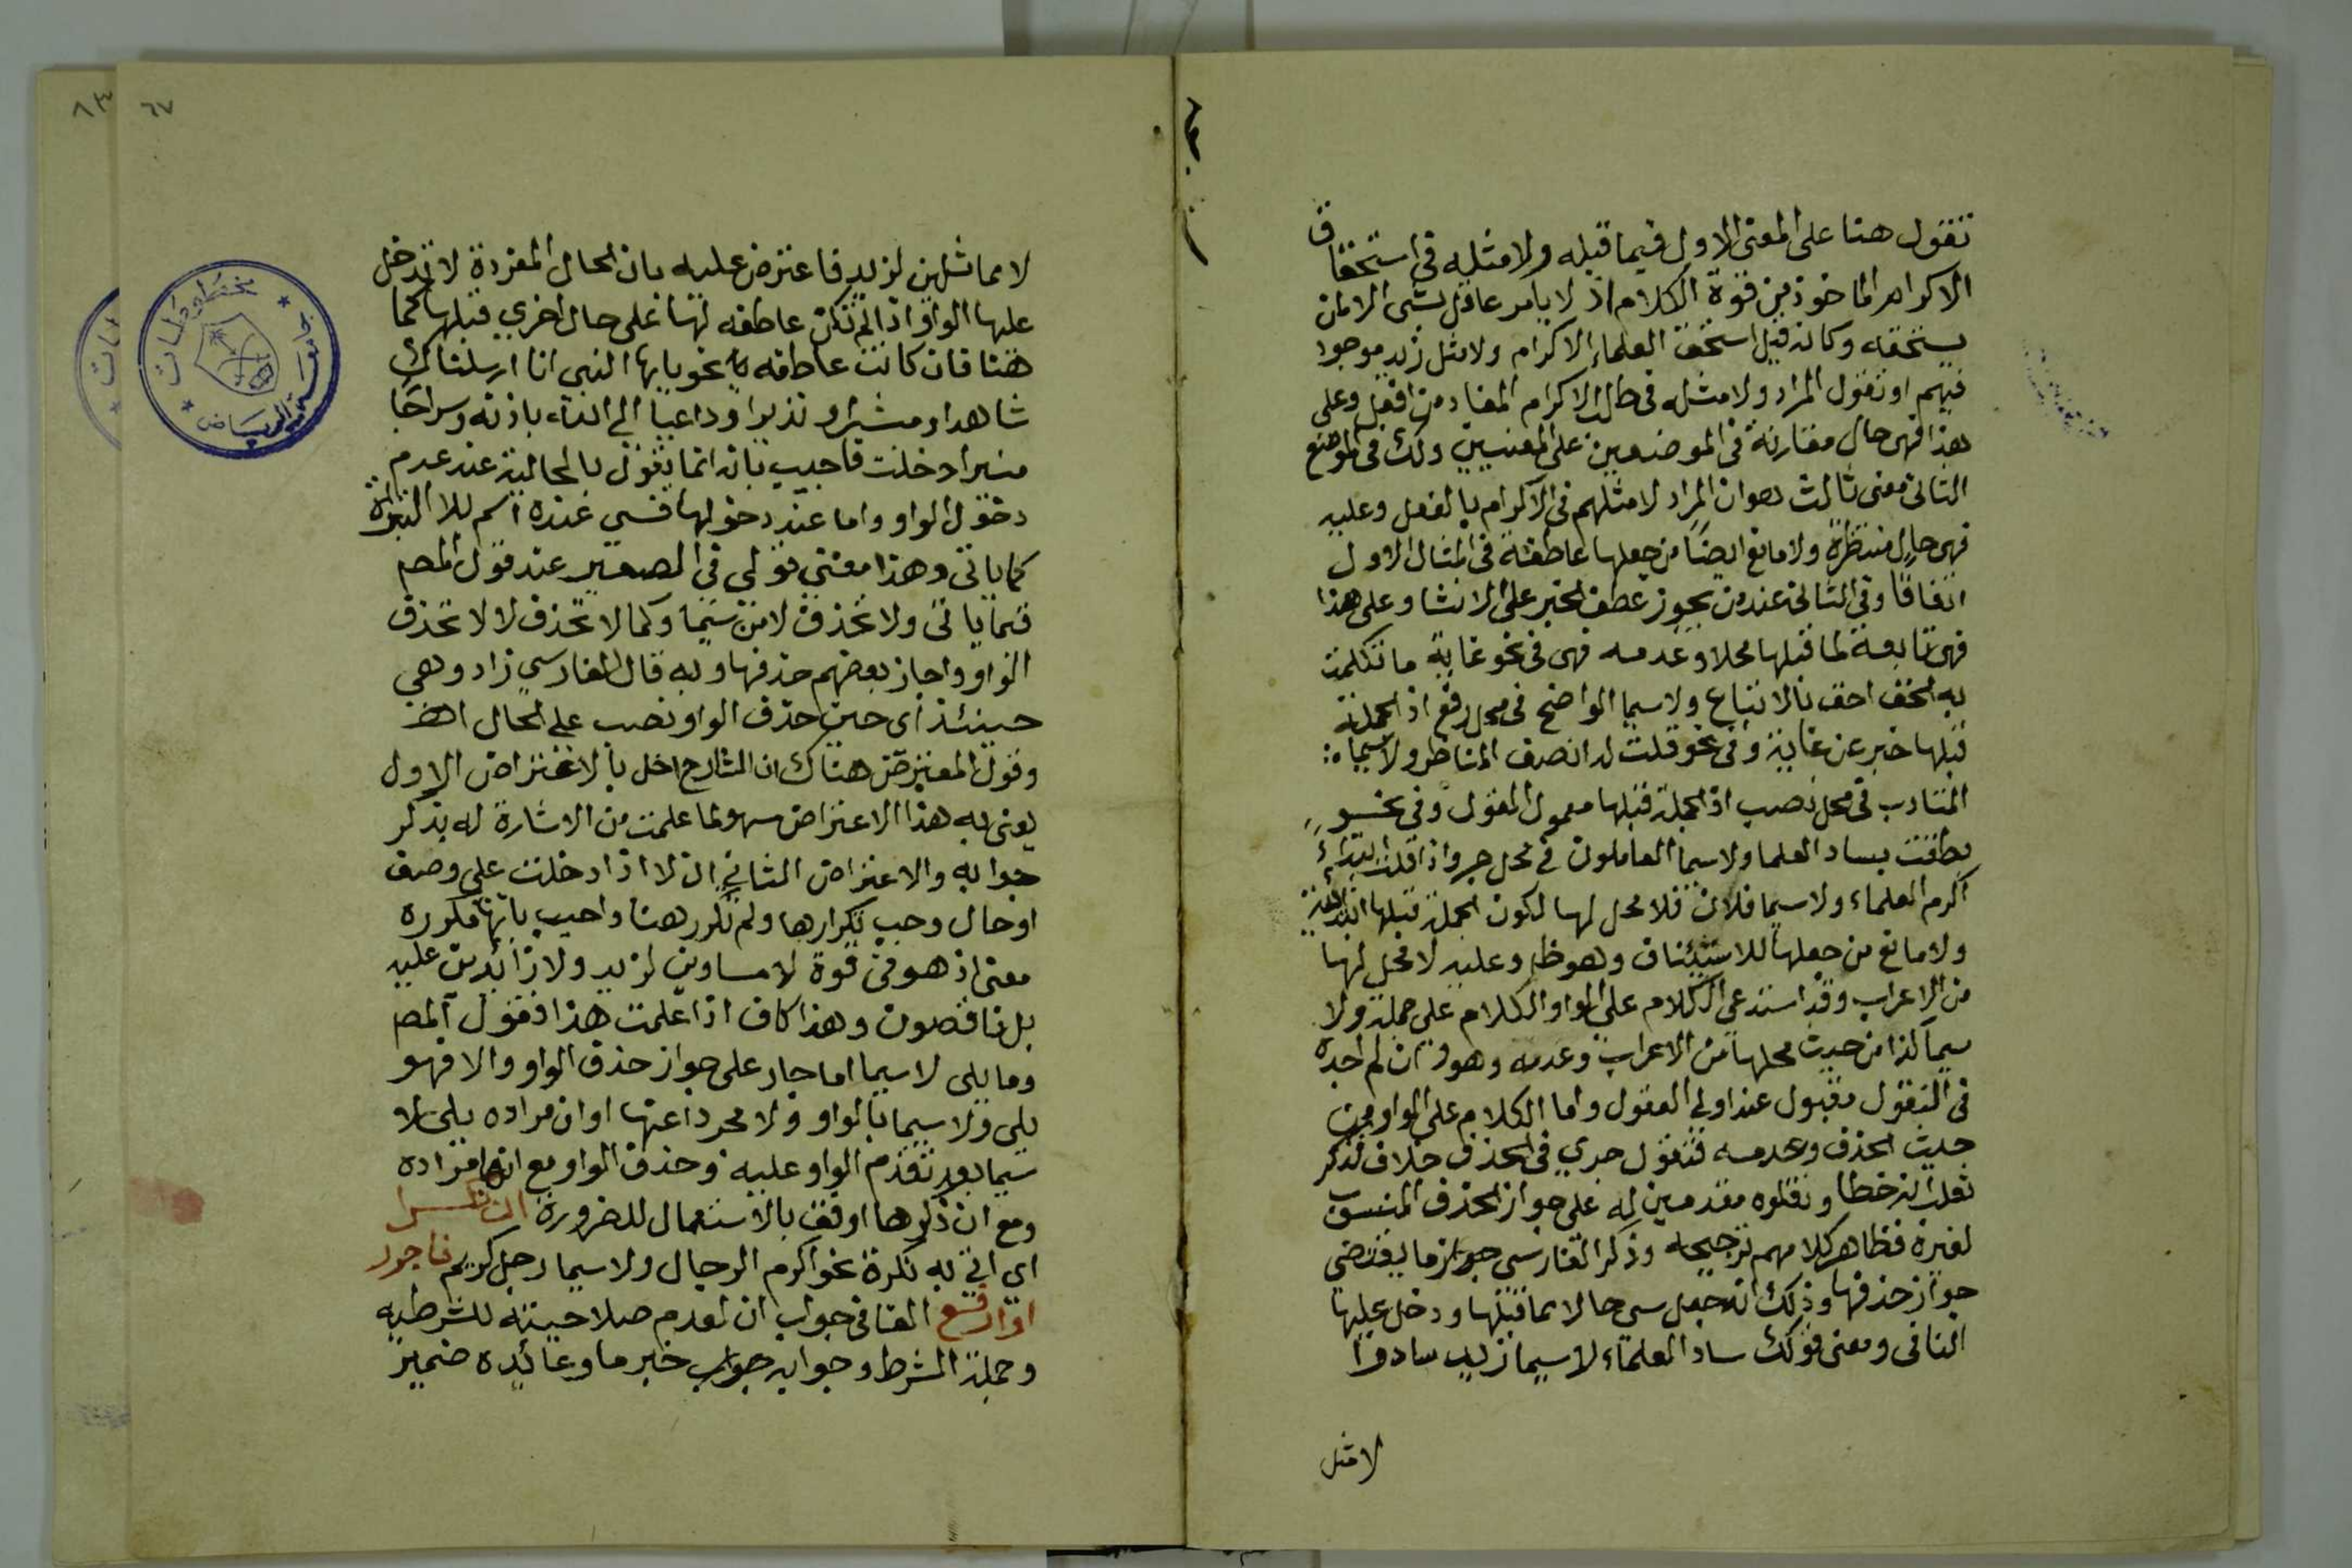 تقول هنا على المعنى الاول فيما قبله ولا مثله فى استحقاق
الاكرام الماخوذ من قوة الكلام اذ لا يأمر عاقل بشى الا لمن
يستحقه وكانه قيل استحق العلماء الاكرام ولا مثل زيد موجود
فيهم او تقول المراد ولا مثله فى طلب الاكرام المفاد من افعل وعلى
هذا فهى حال مقارنة فى الموضعين على المعنيين ولك فى الموضع
الثانى معنى ثالث هو ان المراد لا مثلهم فى الاكرام بالفعل وعليه
فهى حال منتظرة ولا مانع ايضا من جعلها عاطفة فى المثال الاول
اتفاقا وفى الثانى عند من يجوز عطف الخبر على الانشا وعلى هذا
فهى تابعة لما قبلها محلا وعدمه فهى فى نحو غاية ما تكلمت
به الحق احق بالاتباع ولاسيما الواضح فى محل رفع اذ الجملة
قبلها خبر عن غاية وفى نحو قلت له انصف المناظر ولاسيما
المتادب فى محل نصب اذ الجملة قبلها معمول القول وفى نحو
نطقت بساد العلما ولاسيما العاملون فى محل جر واذا قلت ابتداء
اكرم العلماء ولاسيما فلان فلا محل لها لكون الجملة قبلها ابتدائية
ولا مانع من جعلها للاستئناف وهو ظ وعليه لا محل لها
من الاعراب وقد استدعى الكلام على الواو الكلام على جملة ولا
سيما كذا من حيث محلها من الاعراب وعدمه وهو وان لم اجده
فى النقول مقبول عند اولى العقول واما الكلام على الواو من
حيث الحذف وعدمه فنقول جرى فى الحذف خلاف فذكر
ثعلب انه خطا ونقلوه مقدمين له على جواز الحذف المنسوب
لغيره فظاهر كلامهم ترجيحه وذكر الفارسى ما يقتضى
جواز حذفها وذلك انه جعل سى حالا مما قبلها ودخل عليها
النافى ومعنى قولك ساد العلماء لاسيما زيد سادوا
لا مثل
٦٧
٨٣
لا مماثلين لزيد فاعترض عليه بان الحال المفردة لا تدخل
عليها الواو اذا لم تكن عاطفه لها على حال اخرى قبلها كما
هنا فان كانت عاطفه نحو يايها النبى انا ارسلناك
شاهدا ومبشرا ونذيرا وداعيا الى الله باذنه وسراجا
منيرا دخلت فاجيب بانه انما يقول بالحالية عند عدم
دخول الواو واما عند دخولها فسى عنده اسم للا التبرئة
كما ياتى وهذا معنى قولى فى الصغير عند قول المص
فيما ياتى ولا تحذف لا من سيما وكما لا تحذف لا لا تحذف
الواو واجاز بعضهم حذفها وبه قال الفارسي زاد وهى
حينئذ اى حين حذف الواو نصب على الحال اهـ
وقول المعترض هناك ان الشارح اخل بالاعتراض الاول
يعنى به هذا الاعتراض سهو لما علمت من الاشارة له بذكر
جوابه والاعتراض الثانى ان لا اذا دخلت على وصف
او حال وجب تكرارها ولم تكرر هنا واجيب بانها مكررة
معنى اذ هو فى قوة لا مساوين لزيد ولا زائدين عليه
بل ناقصون وهذا كاف اذا علمت هذا فقول المص
وما يلى لاسيما اما جار على جواز حذف الواو والا فهو
يلى ولاسيما بالواو ولا مجردا عنها او ان مراده يلى لا
سيما بعد تقدم الواو عليه وحذف الواو مع انها مراده
ومع ان ذكرها اوفق بالاستعمال للضرورة ان نكرا
اى اتى به نكرة نحو اكرم الرجال ولاسيما رجل كريم فاجرر
او ارفع الفا فى جواب ان لعدم صلاحيته للشرطيه
وجملة الشرط وجوابه خبر ما وعائده ضمير
جامعة الرياض
مخطوطات